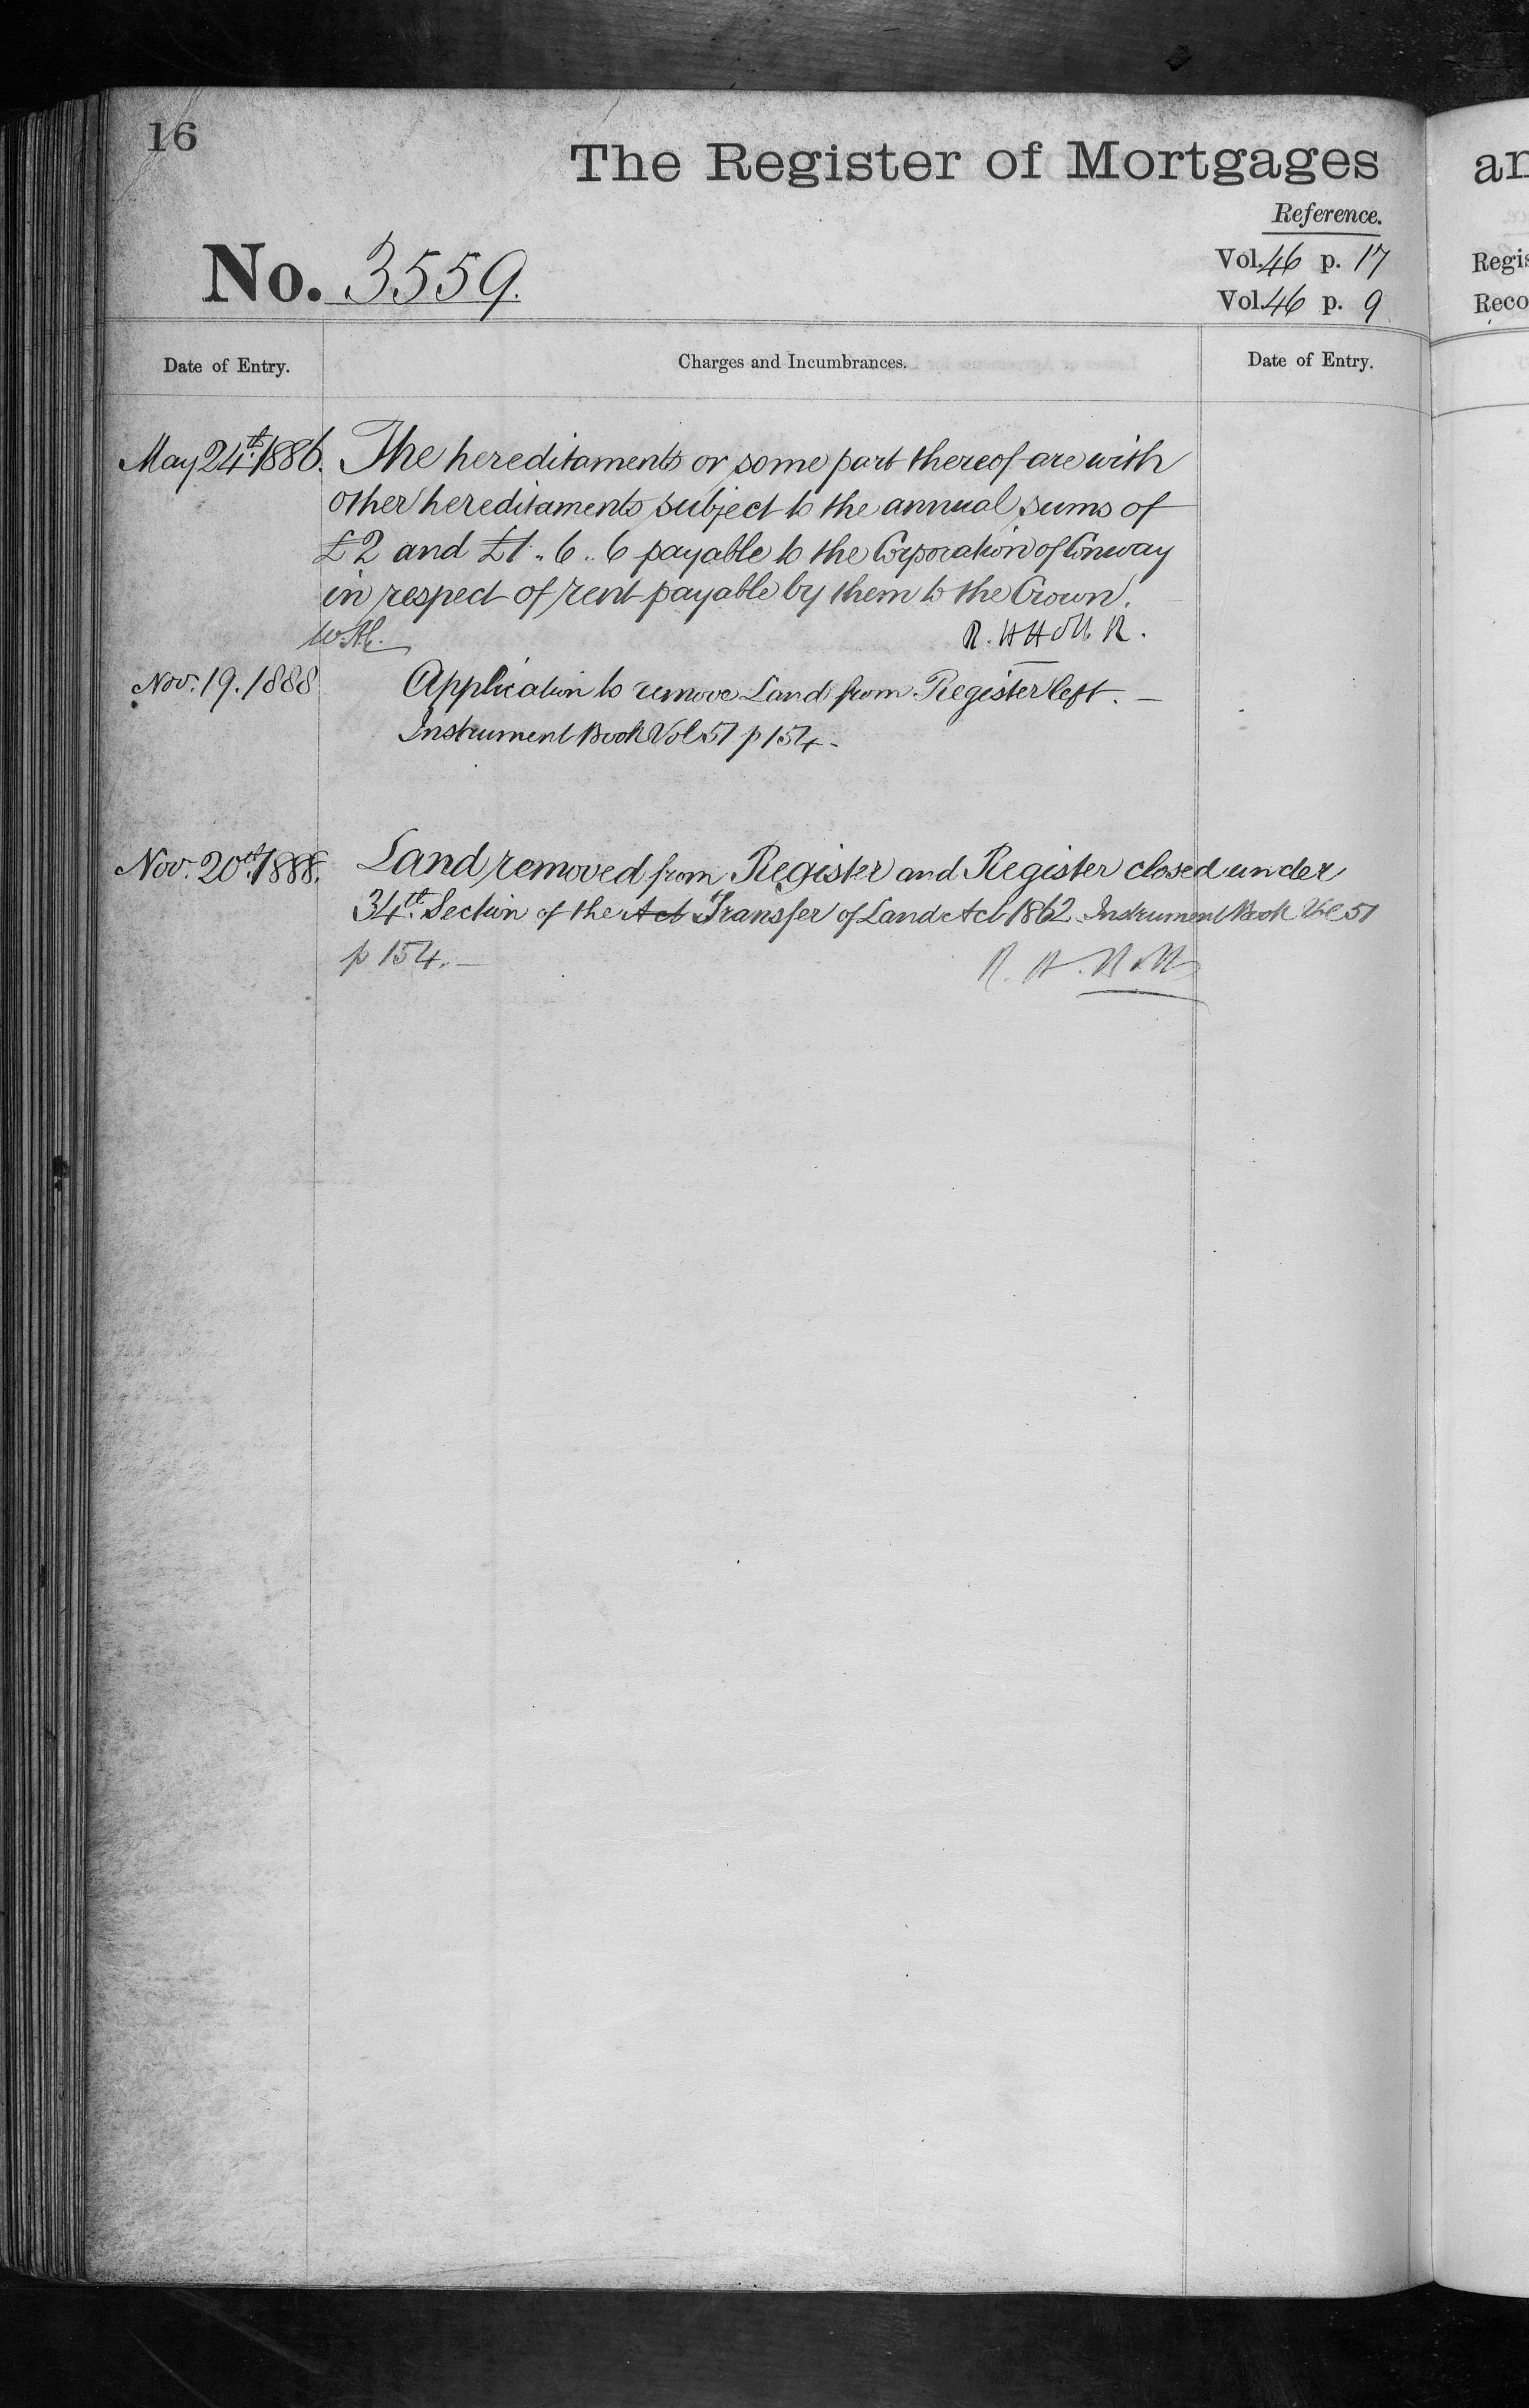 16
The Register of Mortgages
Reference.
No. 3559.
Vol. 46 p. 17
Vol. 46 p. 9
Date of Entry.
Charges and Incumbrances.
Date of Entry.
May 24th 1886. The hereditaments or some part thereof are with
other hereditaments subject to the annual sums of
£2 and £1 .. 6 .. 6 payable to the Corporation of Conway
in respect of rent payable by them to the Crown.
Nov. 19. 1888 Application to remove Land from Register left. —
Instrument Book Vol 51 p 154 -
Nov. 20th 1888. Land removed from Register and Register closed under
34th Section of the Act Transfer of Land Act 1862 Instrument Book Vol 51
p 154. —
ar
Regis
Reco